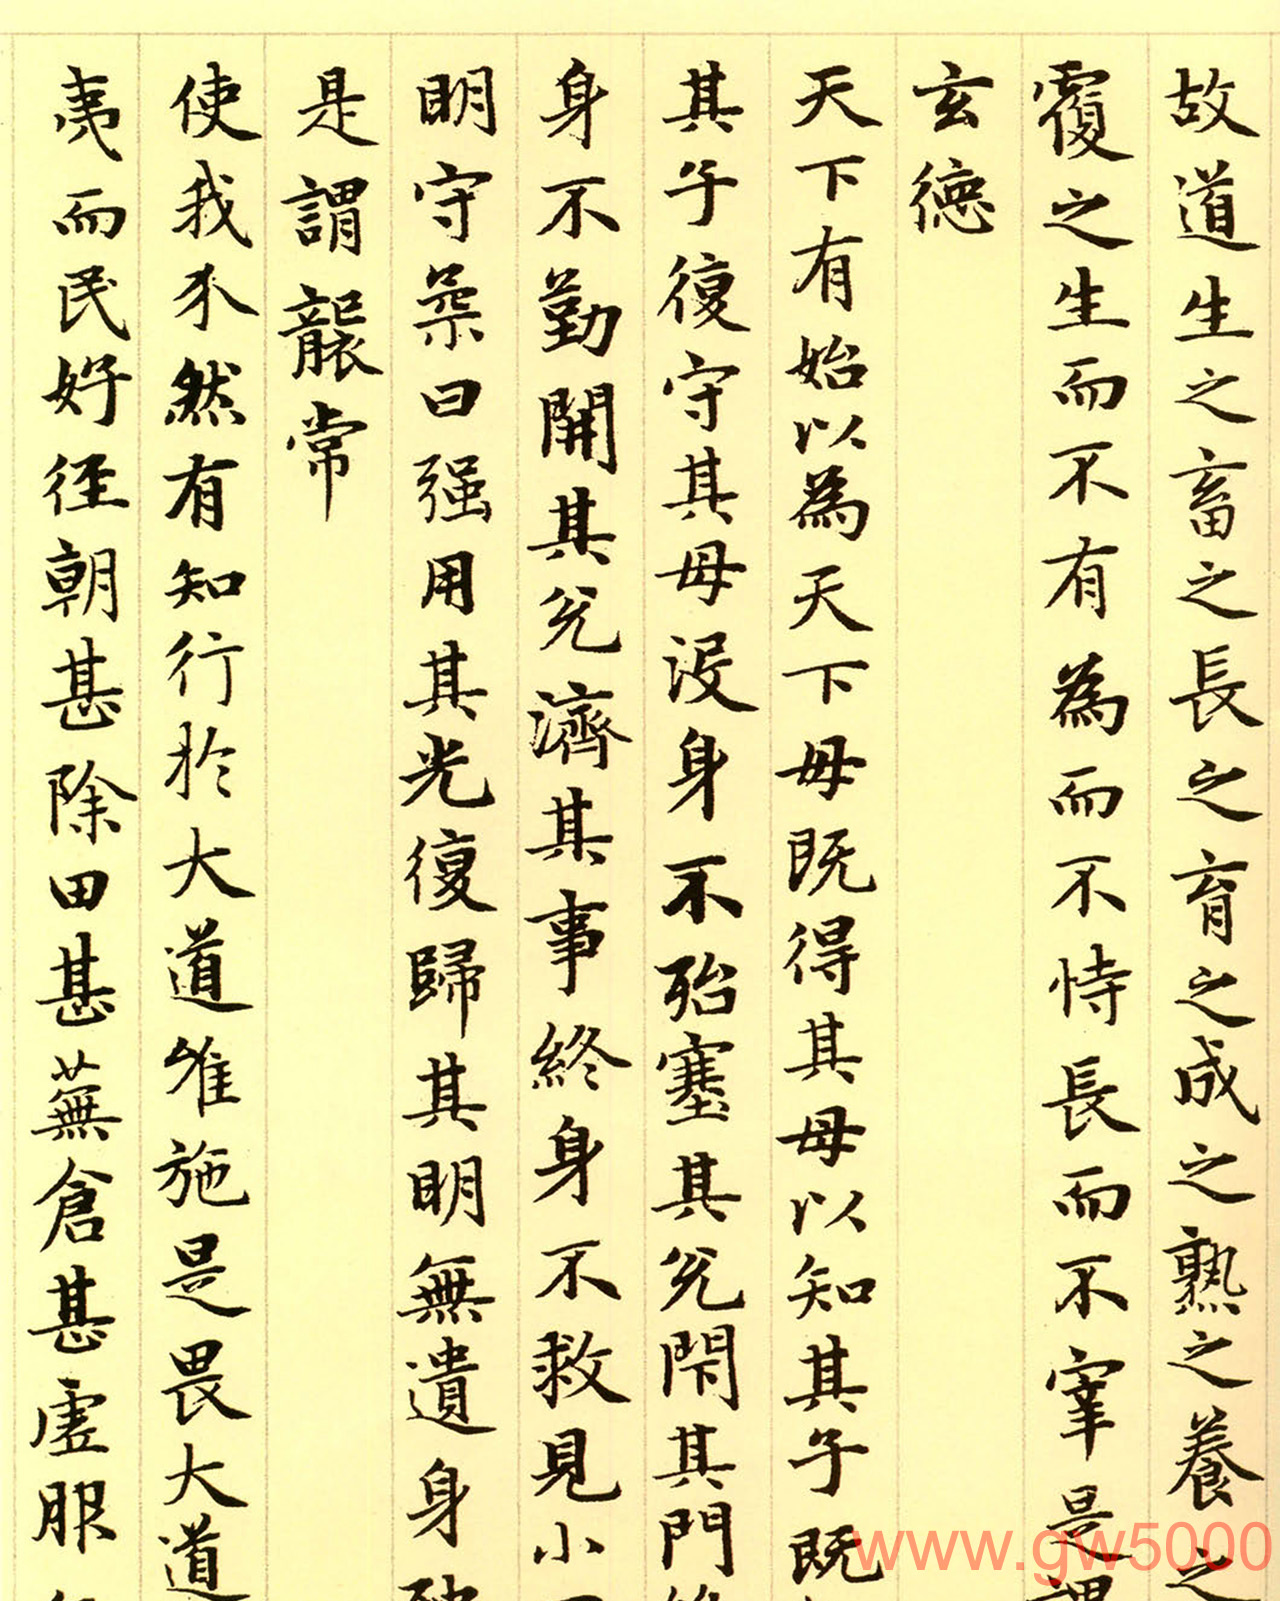 故道生之畜之長之育之成之熟之養之
覆之生而不有為而不恃長而不宰是謂
玄德
天下有始以為天下母既得其母以知其子既
其子復守其母没身不殆塞其兊閇其門
身不勤開其兊濟其事終身不救見小
明守柔曰强用其光復歸其明無遺身
是謂襲常
使我介然有知行於大道唯施是畏大道
夷而民好徑朝甚除田甚蕪倉甚虛服
www.gw5000